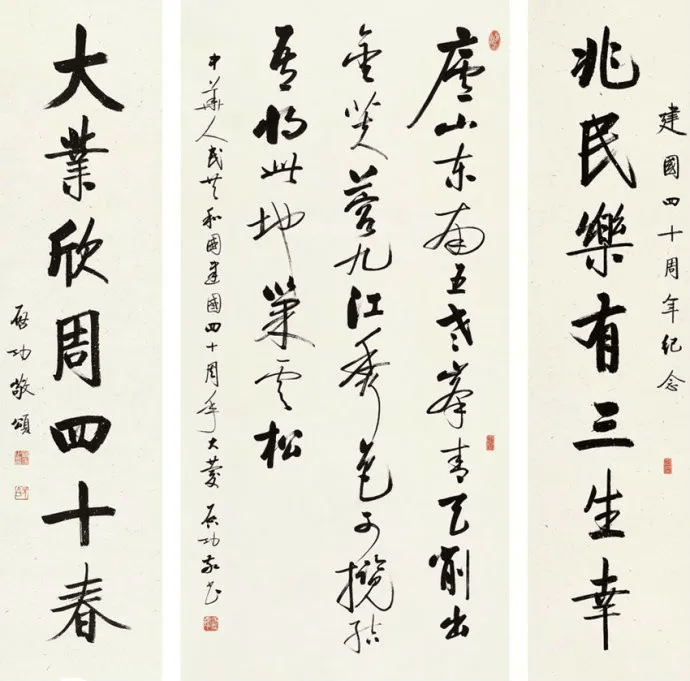 建國四十周年紀念
兆民樂有三生幸
廬山东南五老峯青天削出
金芙蓉九江秀色可攬結
吾將此地巢雲松
中華人民共和國建國四十周年大慶 啟功敬書
大業欣周四十春
啟功敬頌